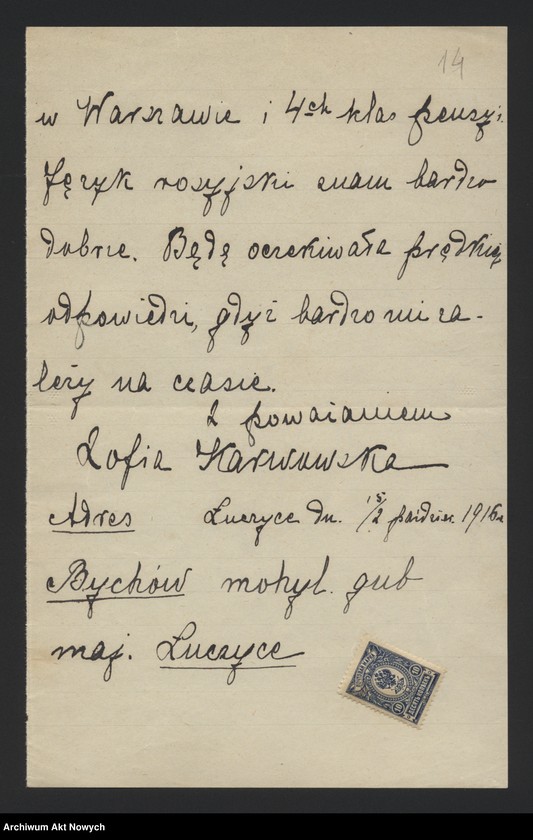 14
w Warszawie i 4ch klas pensyi.
Język rosyjski znam bardzo
dobrze. Będę oczekiwała prędkiej
odpowiedzi, gdyż bardzo mi za-
leży na czasie.
Z poważaniem
Zofia Karwowska
Adres Łuczyce dn. 15/2 paździer. 1916 r.
Bychów mohyl. gub
maj. Łuczyce
10 10
Archiwum Akt Nowych